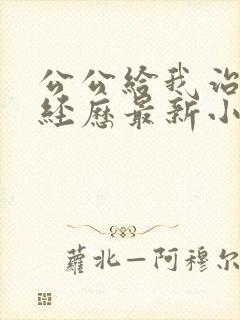 公公给我
经历最新小
蘿北—阿穆尔